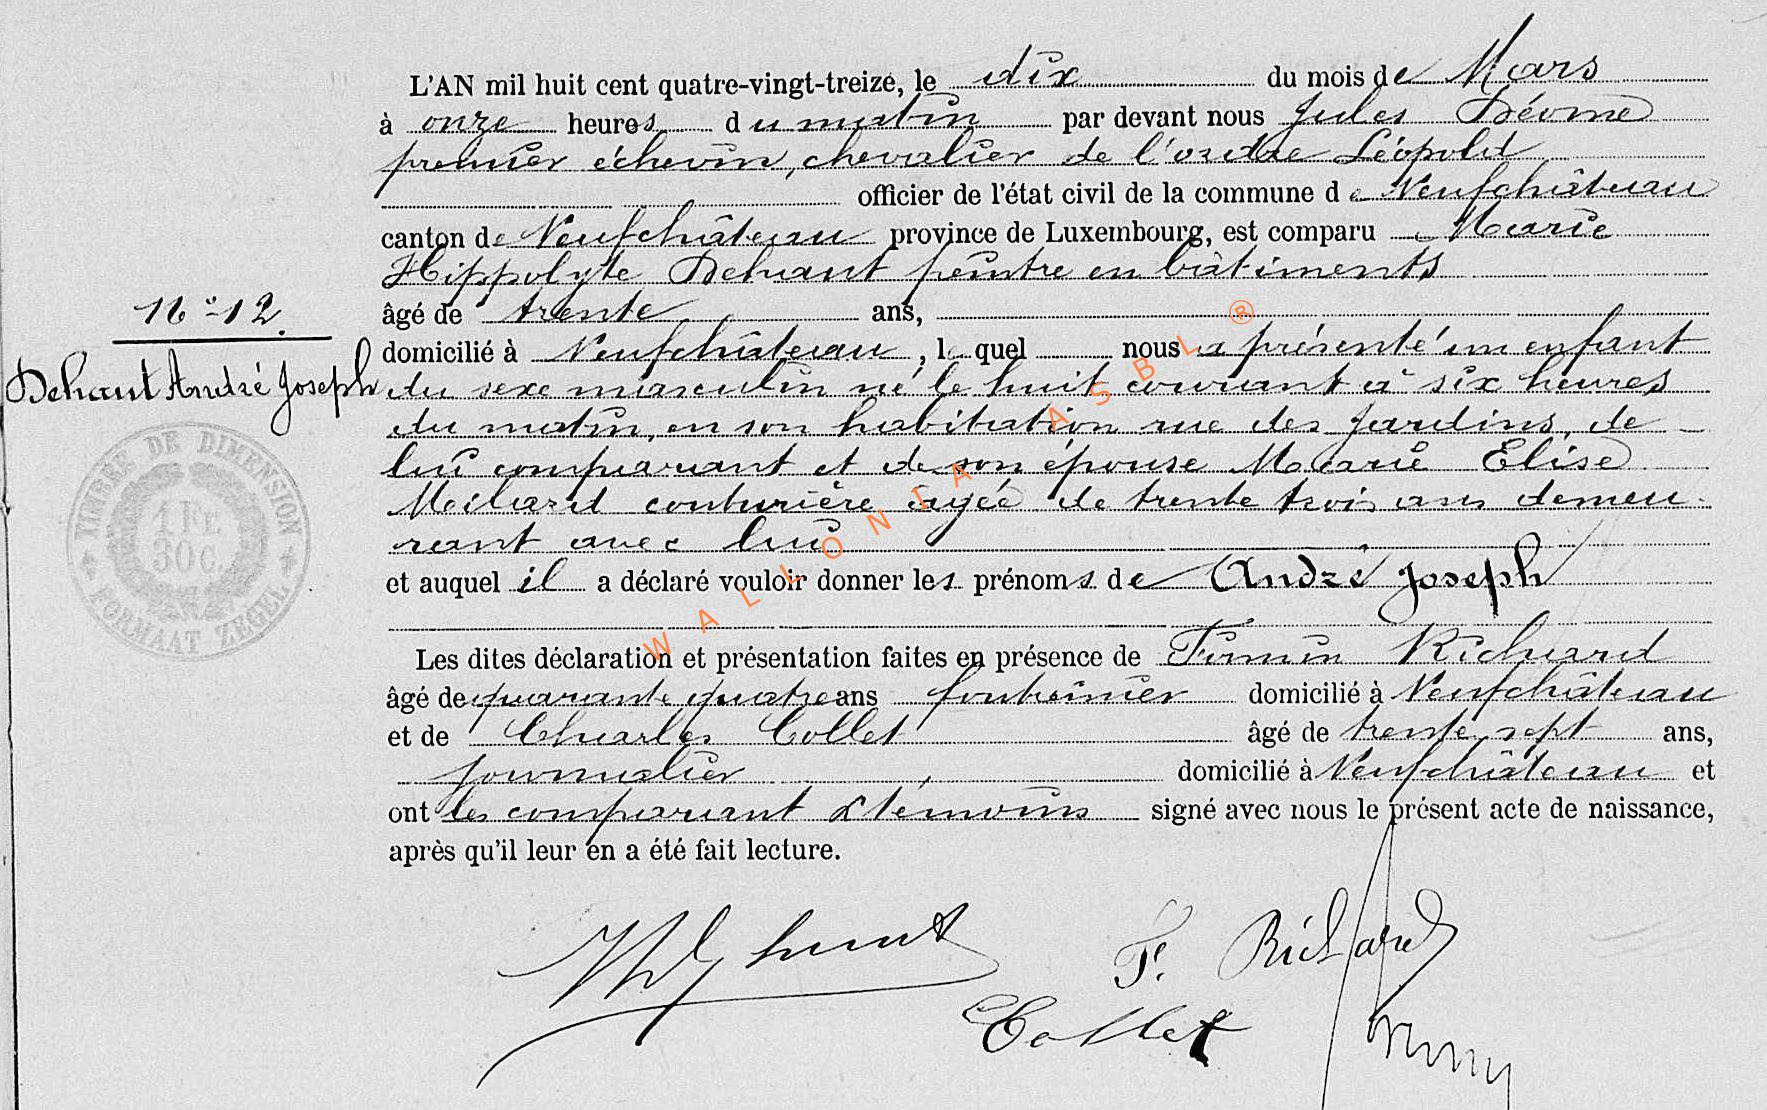 L'AN mil huit cent quatre-vingt-treize, le dix du mois de Mars
à onze heures du matin par devant nous Jules Déome
premier échevin, chevalier de l'ordre Léopold
officier de l'état civil de la commune de Neufchâteau
canton de Neufchâteau province de Luxembourg, est comparu Marie
Hippolyte Dehant peintre en bâtiments
âgé de trente ans,
N° 12.
domicilié à Neufchâteau, lequel nous a présenté un enfant
Dehant André Joseph
du sexe masculin né le huit courant à six heures
du matin, en son habitation rue des Jardins, de
lui comparant et de son épouse Marie Elise
couturière âgée de trente trois ans demeu-
rant avec lui
et auquel il a déclaré vouloir donner les prénoms de André Joseph
TIMBRE DE DIMENSION
1 Fr.
30 C.
FORMAAT ZEGEL
Les dites déclaration et présentation faites en présence de Firmin Richard
âgé de quarante quatre ans domicilié à Neufchâteau
et de Charles Collet âgé de trente sept ans,
journalier domicilié à Neufchâteau et
ont les comparant & témoins signé avec nous le présent acte de naissance,
après qu'il leur en a été fait lecture.
F. Richard
Collet
WALLONIA ASBL ®